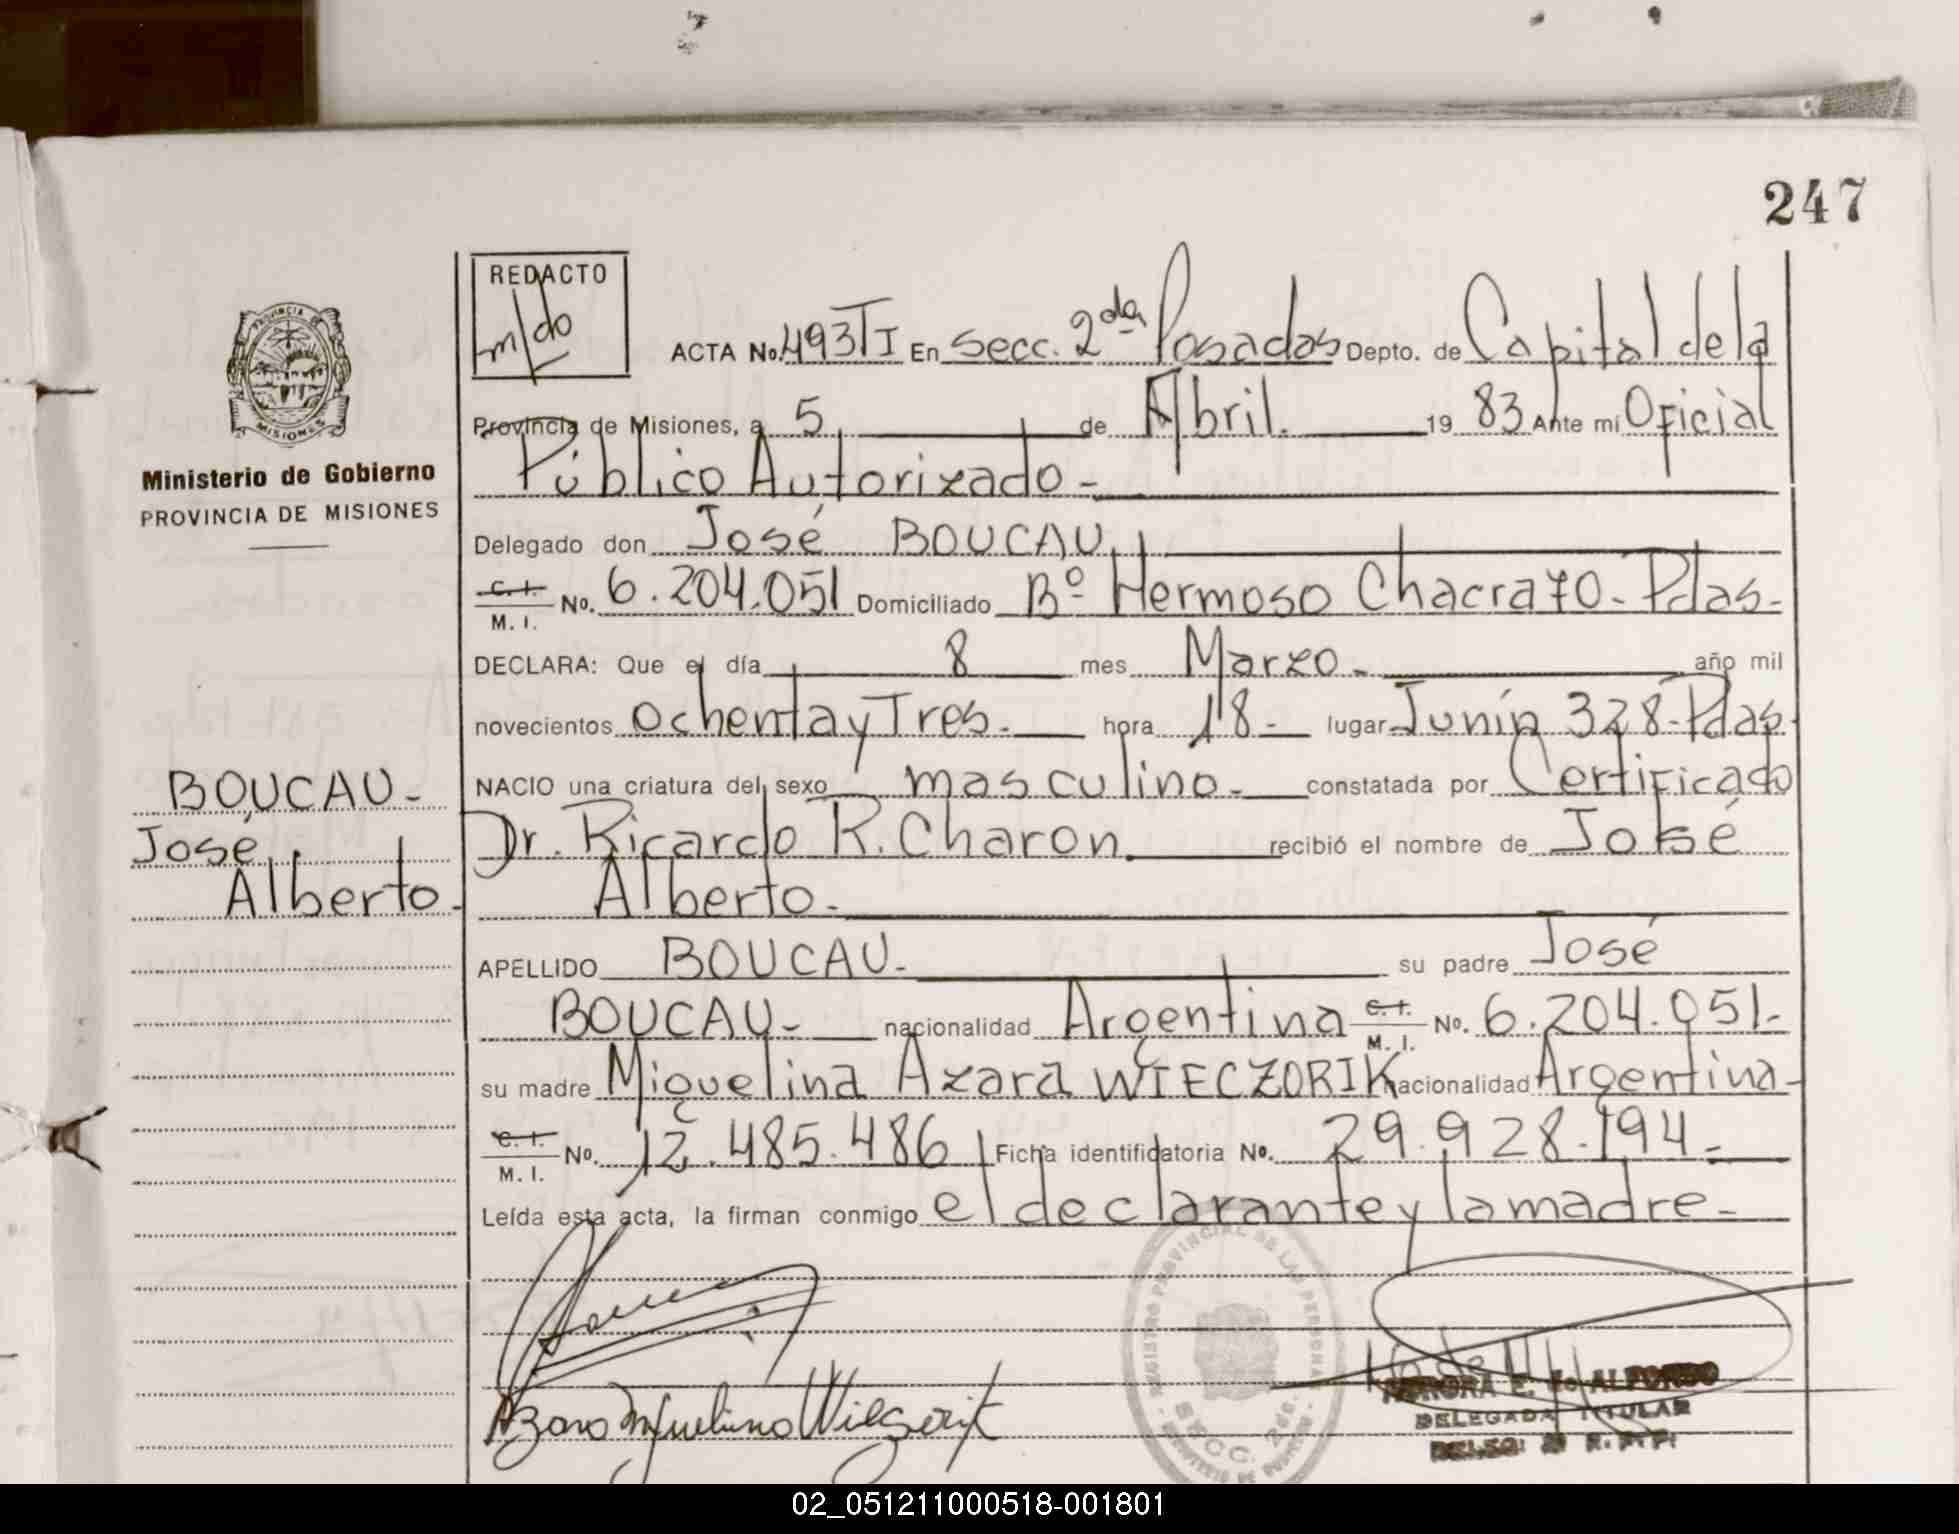 247
REDACTO
m/do
ACTA No. 493 TI En Secc. 2da Posadas Depto. de Capital de la
Provincia de Misiones, a 5 de Abril. 19 83 Ante mi Oficial
Público Autorizado -
Ministerio de Gobierno
PROVINCIA DE MISIONES
Delegado don José BOUCAU,
C. I. M. I. No. 6.204.051 Domiciliado Bº Hermoso Chacra 70 - Pdas -
DECLARA: Que el día 8 mes Marzo - año mil
novecientos ochenta y Tres. - hora 18 - lugar Junín 328 - Pdas -
NACIO una criatura del sexo masculino - constatada por Certificado
BOUCAU -
José
Alberto -
Dr. Ricardo R. Charon recibió el nombre de José
Alberto -
APELLIDO BOUCAU - su padre José
BOUCAU - nacionalidad Argentina C. I. M. I. No. 6.204.051 -
su madre Miguelina Azara WIECZORIK nacionalidad Argentina -
C. I. M. I. No. 12.485.486 Ficha identificatoria No. 29.928.194 -
Leída esta acta, la firman conmigo el declarante y la madre -
REGISTRO PROVINCIAL DE LAS PERSONAS
SECC. 2da.
Azara Miguelina Wieczorik
DELEGADA TITULAR
02_051211000518-001801